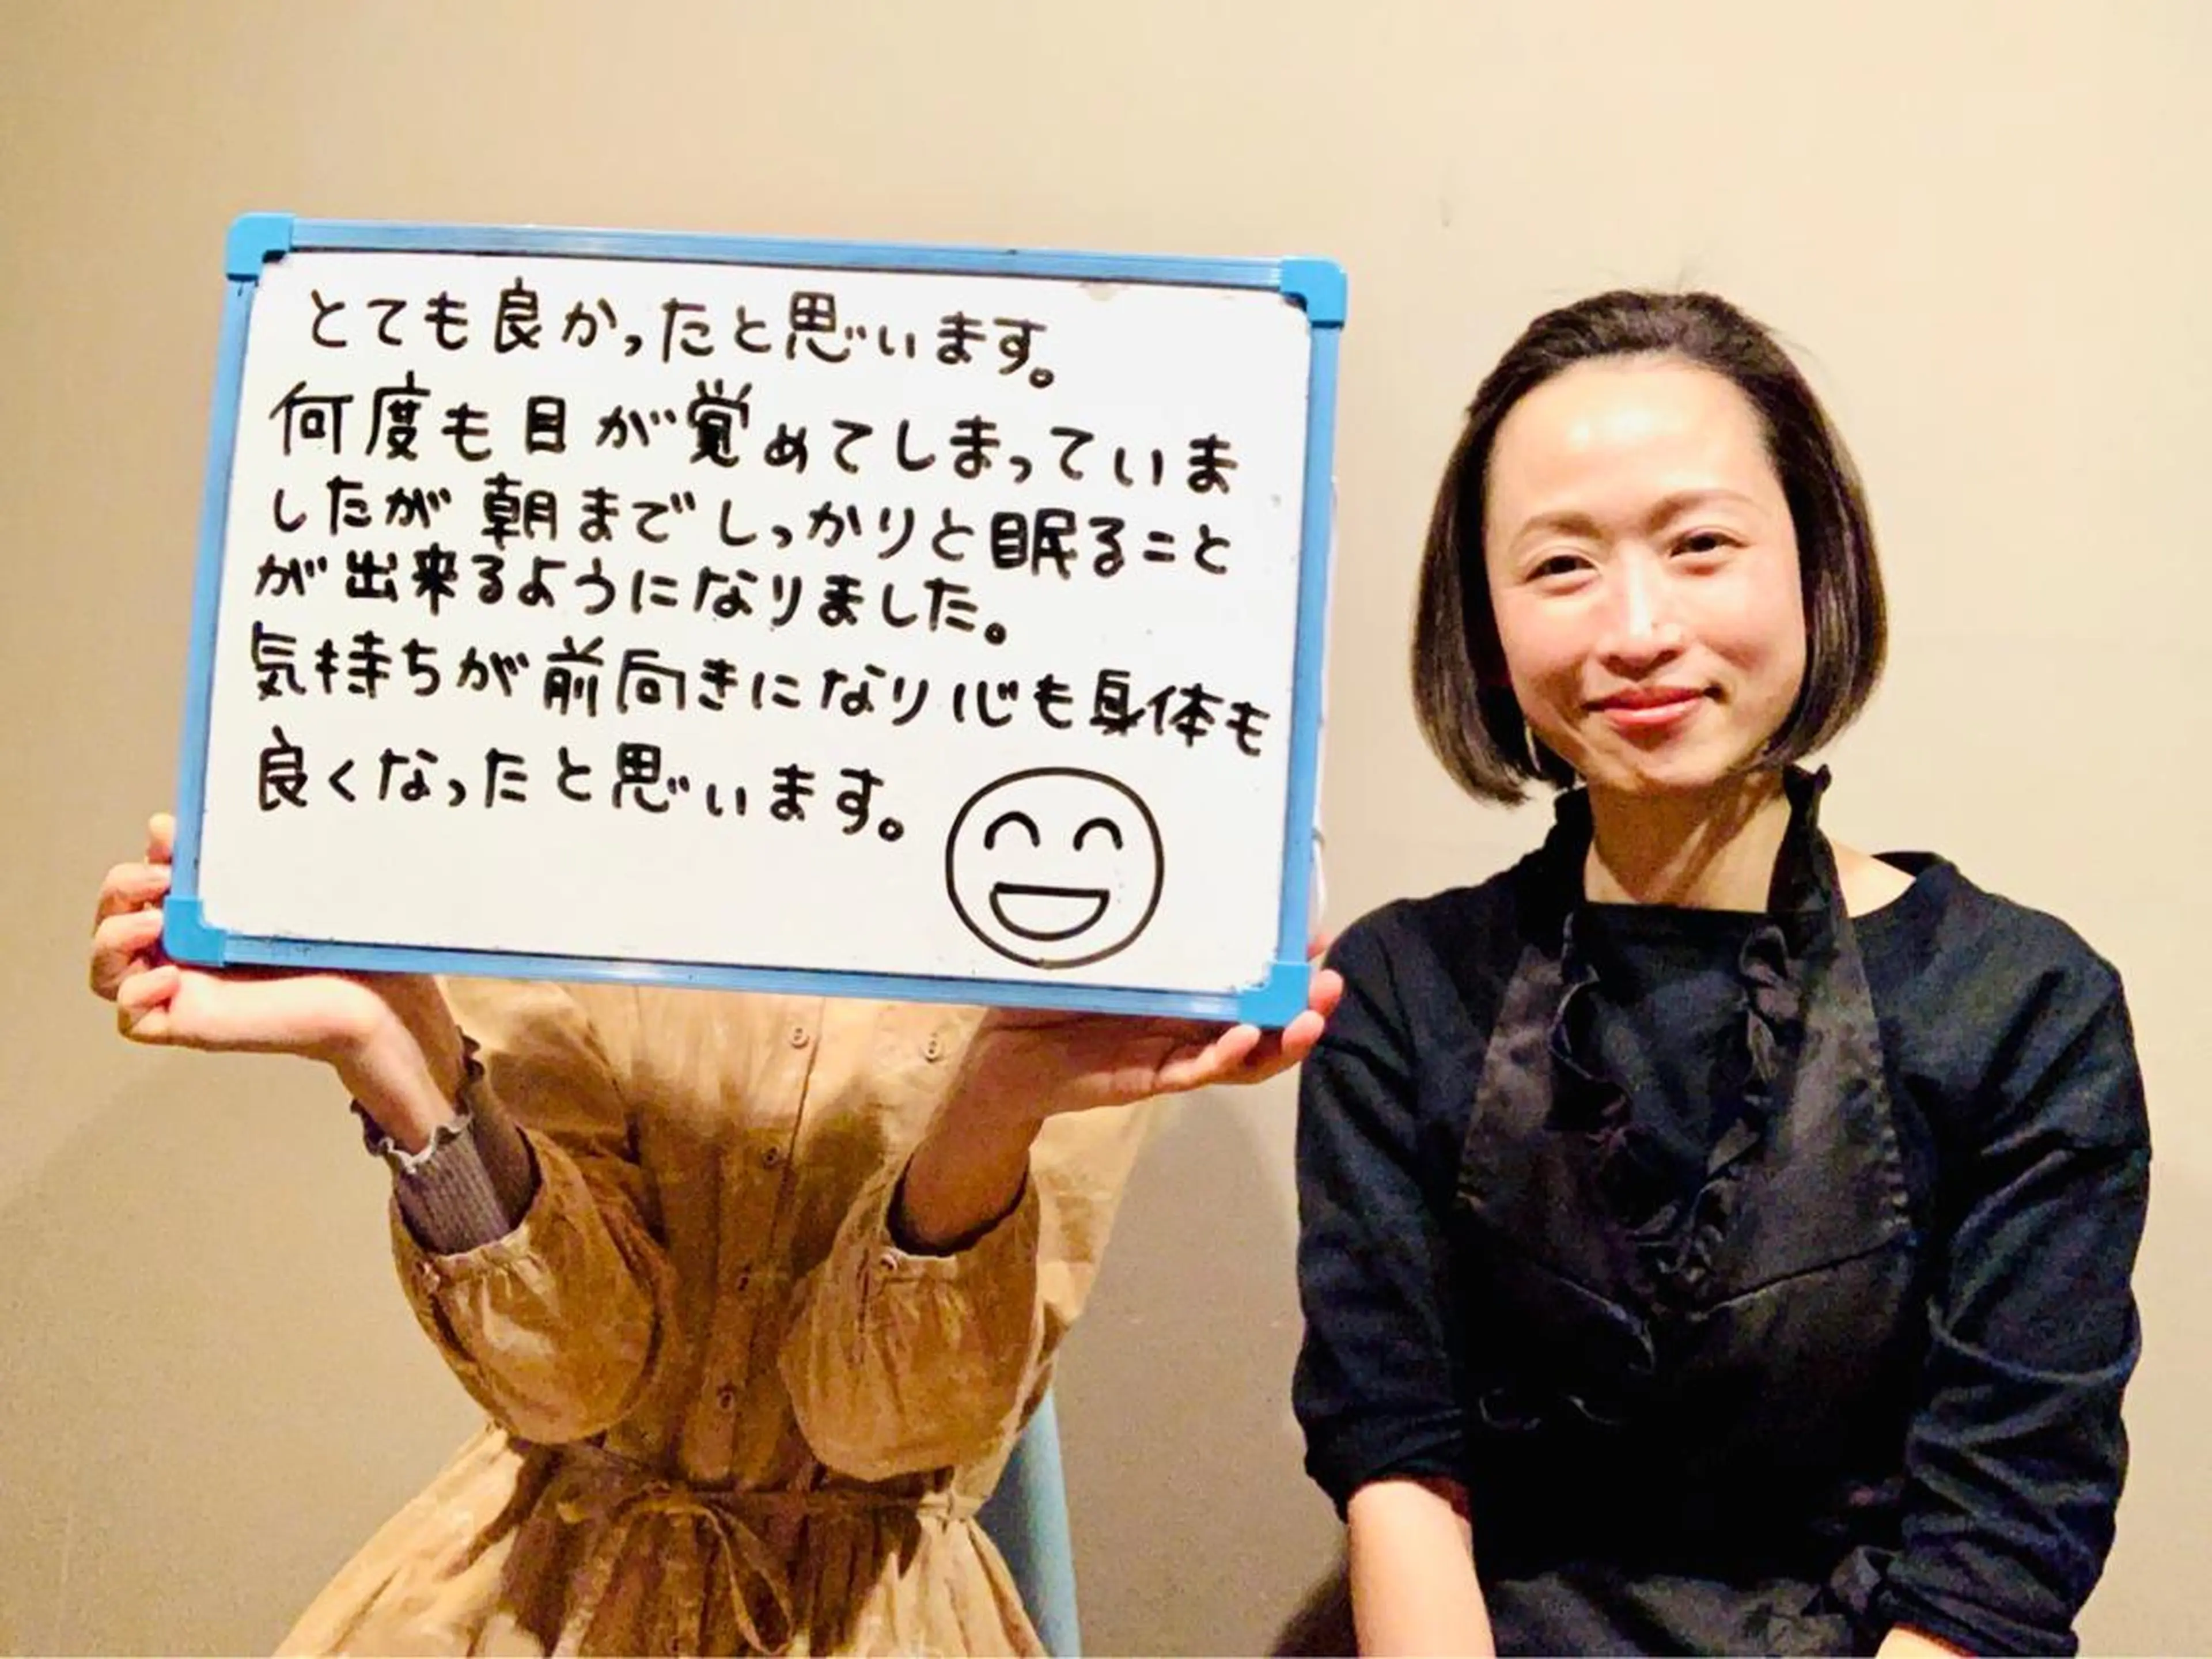 とても良かったと思います。
何度も目が覚めてしまっていま
したが朝までしっかりと眠ること
が出来るようになりました。
気持ちが前向きになり心も身体も
良くなったと思います。